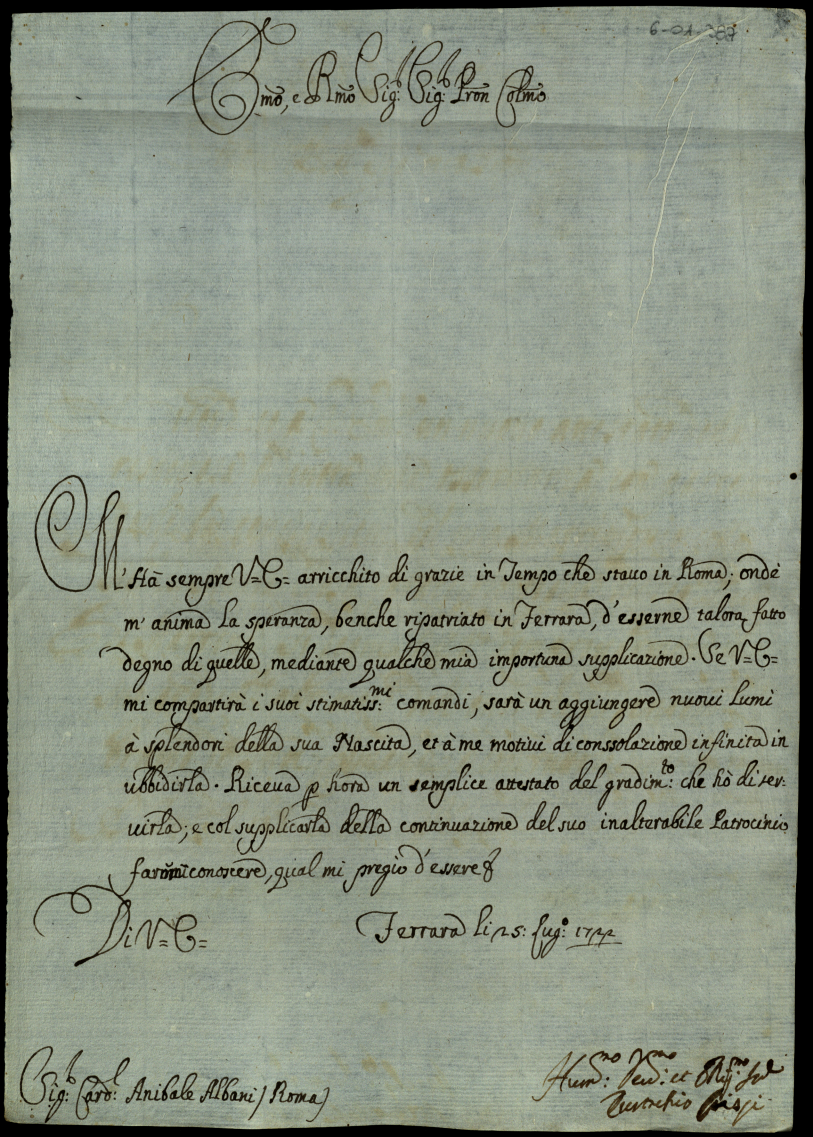 6-01-387
Emo, e Rmo Sig.r Sig.r Pron Colmo
M'Hà sempre V=E= arricchito di grazie in Tempo che stavo in Roma; onde
m'anima la speranza, benche ripatriato in Ferrara, d'esserne talora fatto
degno di quelle, mediante qualche mia importuna supplicazione. Se V=E=
mi compartirà i suoi stimatiss:mi comandi, sarà un aggiungere nuovi Lumi
à splendori della sua Nascita, et à me motivi di conssolazione infinita in
ubbidirla. Riceva p hora un semplice attestato del gradim:to che hò di ser-
uirla; e col supplicarla della continuazione del suo inalterabile Patrocinio
farmi conoscere, qual mi pregio d'essere
Di V=E= Ferrara li 25: Lug:o 1722
Sig:r Card:l Anibale Albani / Roma)
Hum:mo Deu:mo et Oblig:mo